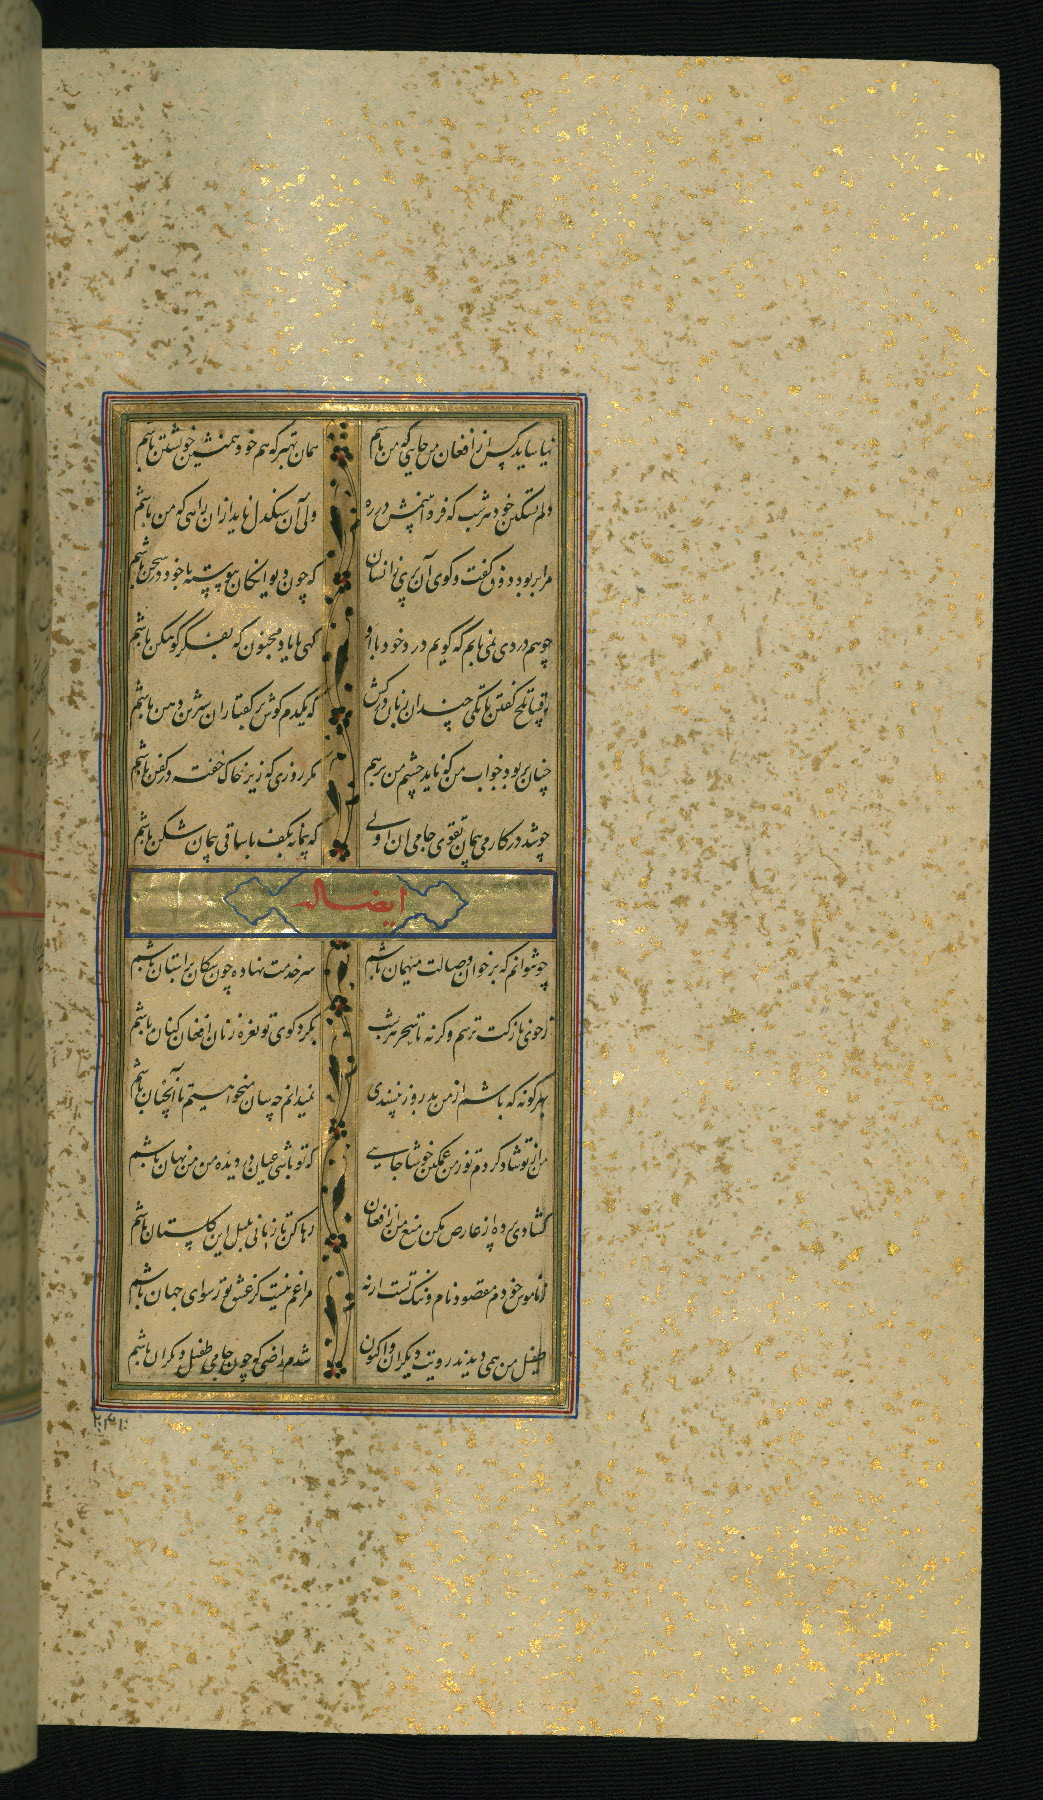 نیاساید کس از افغان من جایی که من باشم
همان بهتر که هم خود همنشین خویشتن باشم
دلم تسکین خود هر شب که فردا بینمش در ره
ولی آن سنگدل ناید ازان راهی که من باشم
مرا بربود ذوق گفت و گوی آن پری زانسان
که چون دیوانگان پیوسته با خود در سخن باشم
چو همدردی نمی یابم که گویم درد خود با او
گهی با یاد مجنون گه بفکر کوهکن باشم
رقیبا تلخ گفتن تا بکی چندان زبان درکش
که یکدم گوش بر گفتار ان شیرین دهن باشم
چنان بربود خواب من که ناید چشم من برهم
مگر روزی که زیر خاک خفته در کفن باشم
چو شد در کار می پیمان تقوی جامی ان اولی
که پیمانه بکف با ساقی پیمان شکن باشم
ایضا له
چو نتوانم که بر خوان وصالت میهمان باشم
سر خدمت نهاده چون سکان بر استان باشم
ز خوی نازکت ترسم وگرنه تا سحر هر شب
بگرد کوی تو نعره زنان افغان کنان باشم
بهر گونه که باشم از من بدروز نپسندی
نمیدانم چه سان میخواهیم تا آنچنان باشم
من از تو شاد گردم تو ز من غمگین خوشا جایی
که تو باشی عیان در دیده من من نهان باشم
گشادی پرده از عارض مکن منع من از افغان
رها کن تا زمانی بلبل این گلستان باشم
ز ناموس خودم مقصود نام و ننگ تست ارنه
مرا غم نیست کز عشق تو رسوای جهان باشم
طفیل من همی دیدند رویت دیگران واکنون
شدم راضی که چون جامی طفیل دیگران باشم